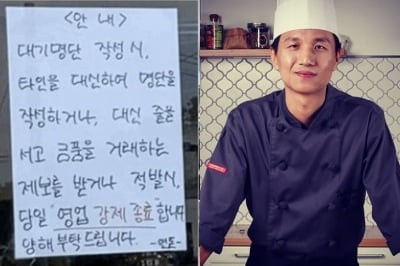 <안 내>
대기명단 작성시,
타인을 대신하여 명단을
작성하거나, 대신 줄을
서고 금품을 거래하는
제보를 받거나 적발시,
당일 "영업 강제 종료"합니다
양해부탁드립니다.
-연돈-